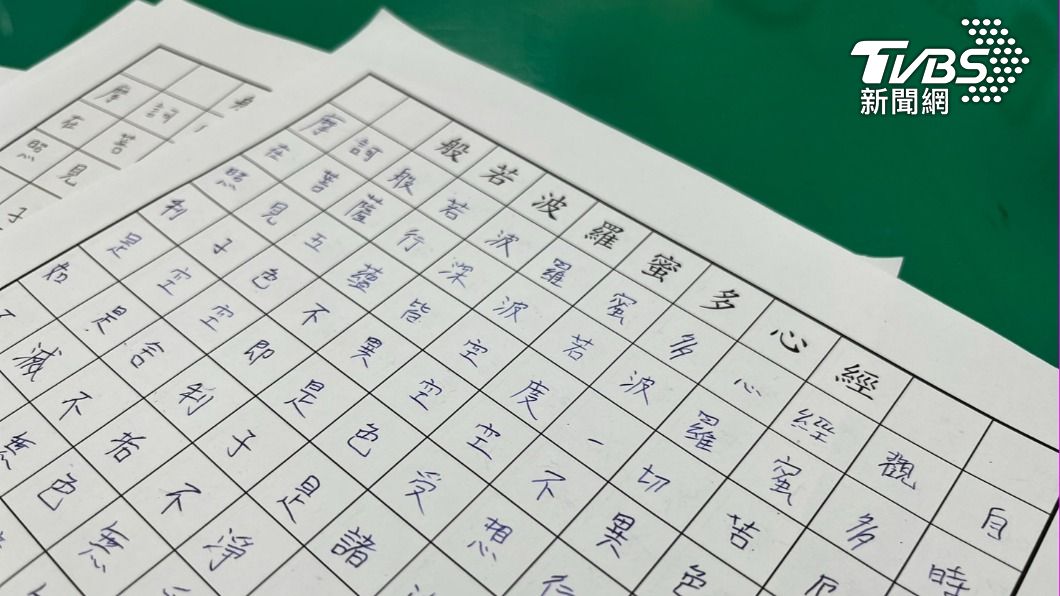 TVBS
新聞網
般若波羅蜜多心經
摩訶般若波羅蜜多心經觀自
在菩薩行深波若波羅蜜多時
照見五蘊皆空度一切苦厄
利子色不異空空不異色
是空空即是色受想行
是舍利子是諸
不滅不若不淨
無色無
摩訶
在菩
照見
子